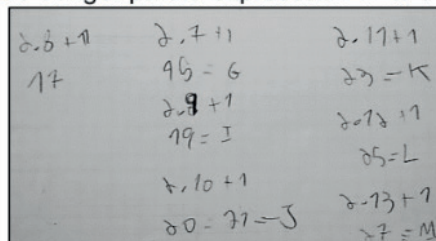 2.8 + 1
17
2.7 + 1
15 = G
2.9 + 1
19 = I
2.10 + 1
20 = 21 = J
2.11 + 1
23 = K
2.12 + 1
25 = L
2.13 + 1
27 = M